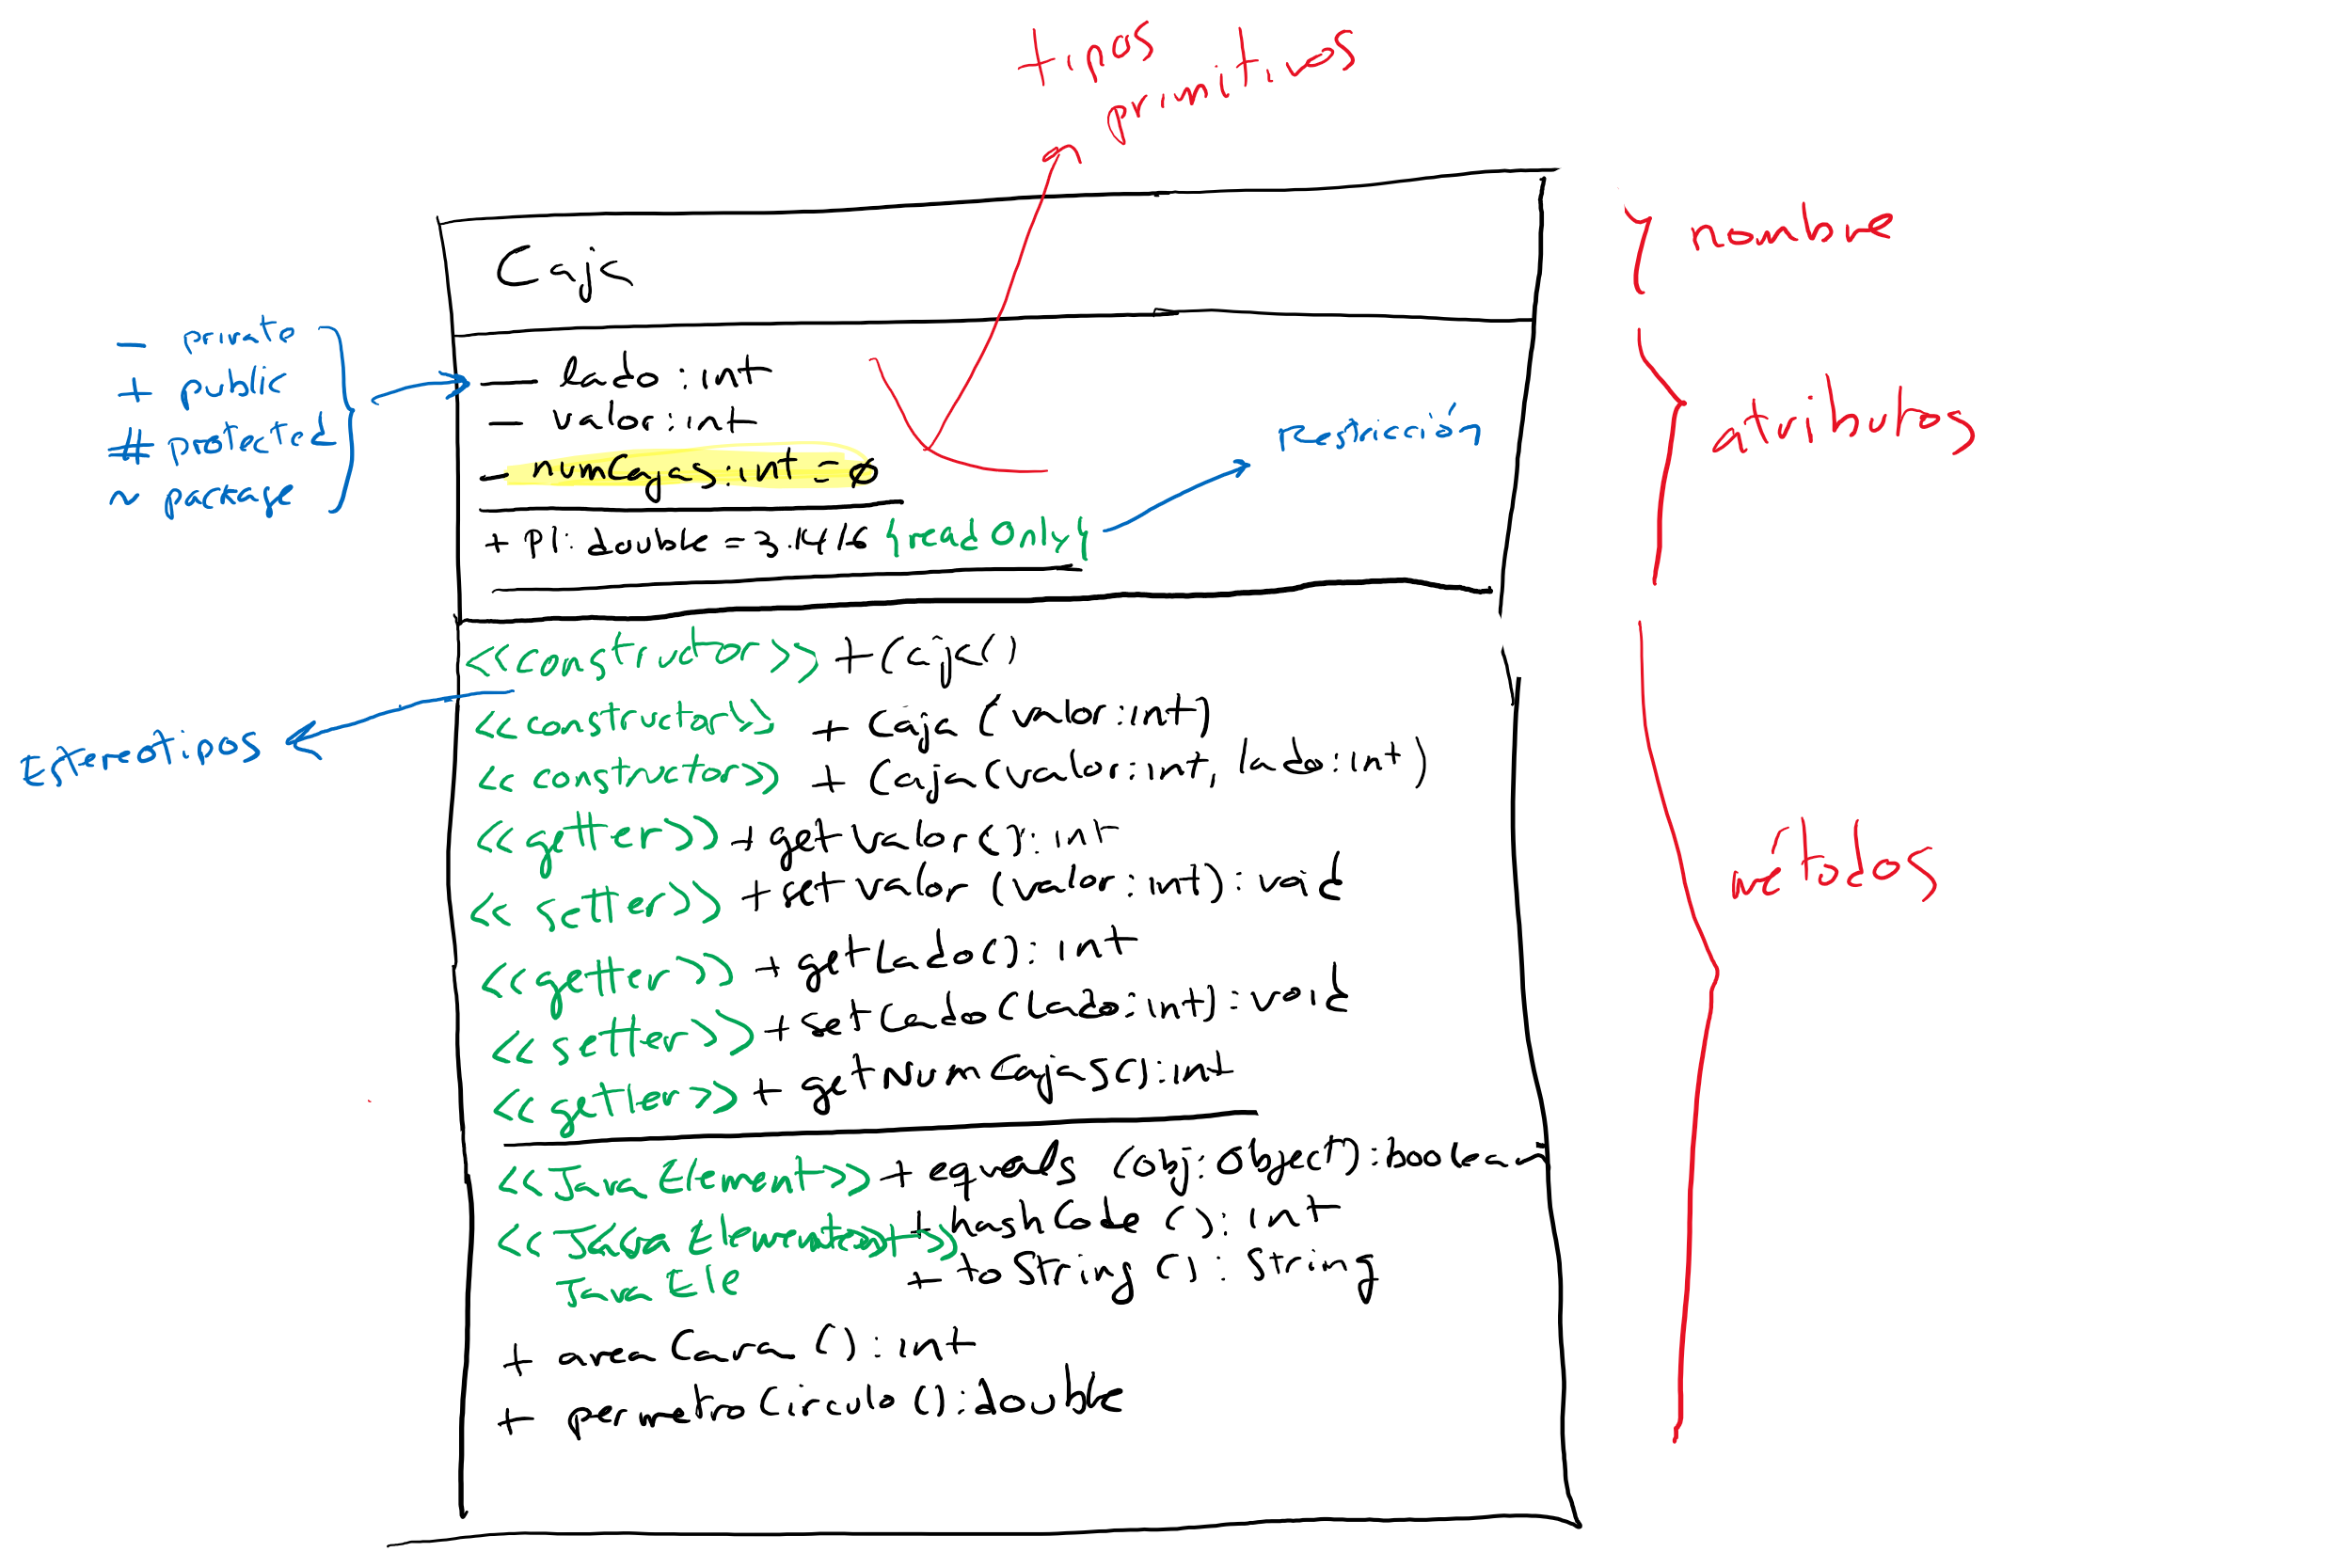 tipos
primitivos
Caja
nombre
- private
+ public
# protected
~ package
- lado : int
- valor : int
- numCajas : int = 0
+ PI : double = 3.1416 {readOnly}
restricción
atributos
<<constructor>> + Caja()
<<constructor>> + Caja (valor : int)
<<constructor>> + Caja (valor : int, lado : int)
Estereotipos
<<getter>> + getValor () : int
<<setter>> + setValor (valor : int) : void
<<getter>> + getLado () : int
<<setter>> + setLado (lado : int) : void
<<getter>> + getNumCajas () : int
métodos
<<Java Element>> + equals (obj : Object) : boolean
<<Java Element>> + hashCode () : int
Java Ele + toString () : String
+ areaCara () : int
+ permetroCirculo () : double